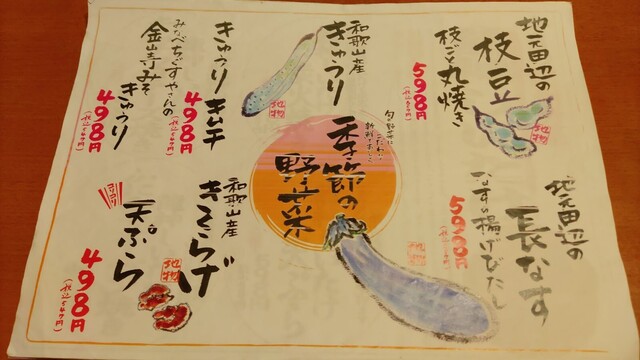 地元田辺の
枝豆
枝ごと丸焼き
598円
地物
和歌山産
きゅうり
地物
きゅうりキムチ
498円
(税込547円)
みなべちどすやさんの
金山寺みそ
きゅうり
498円
(税込547円)
旬野菜に
こだわり
季節の
野菜
地元田辺の
長なす
なすの揚げびたし
地物
和歌山産
きくらげ
地物
コリコリ
天ぷら
498円
(税込547円)